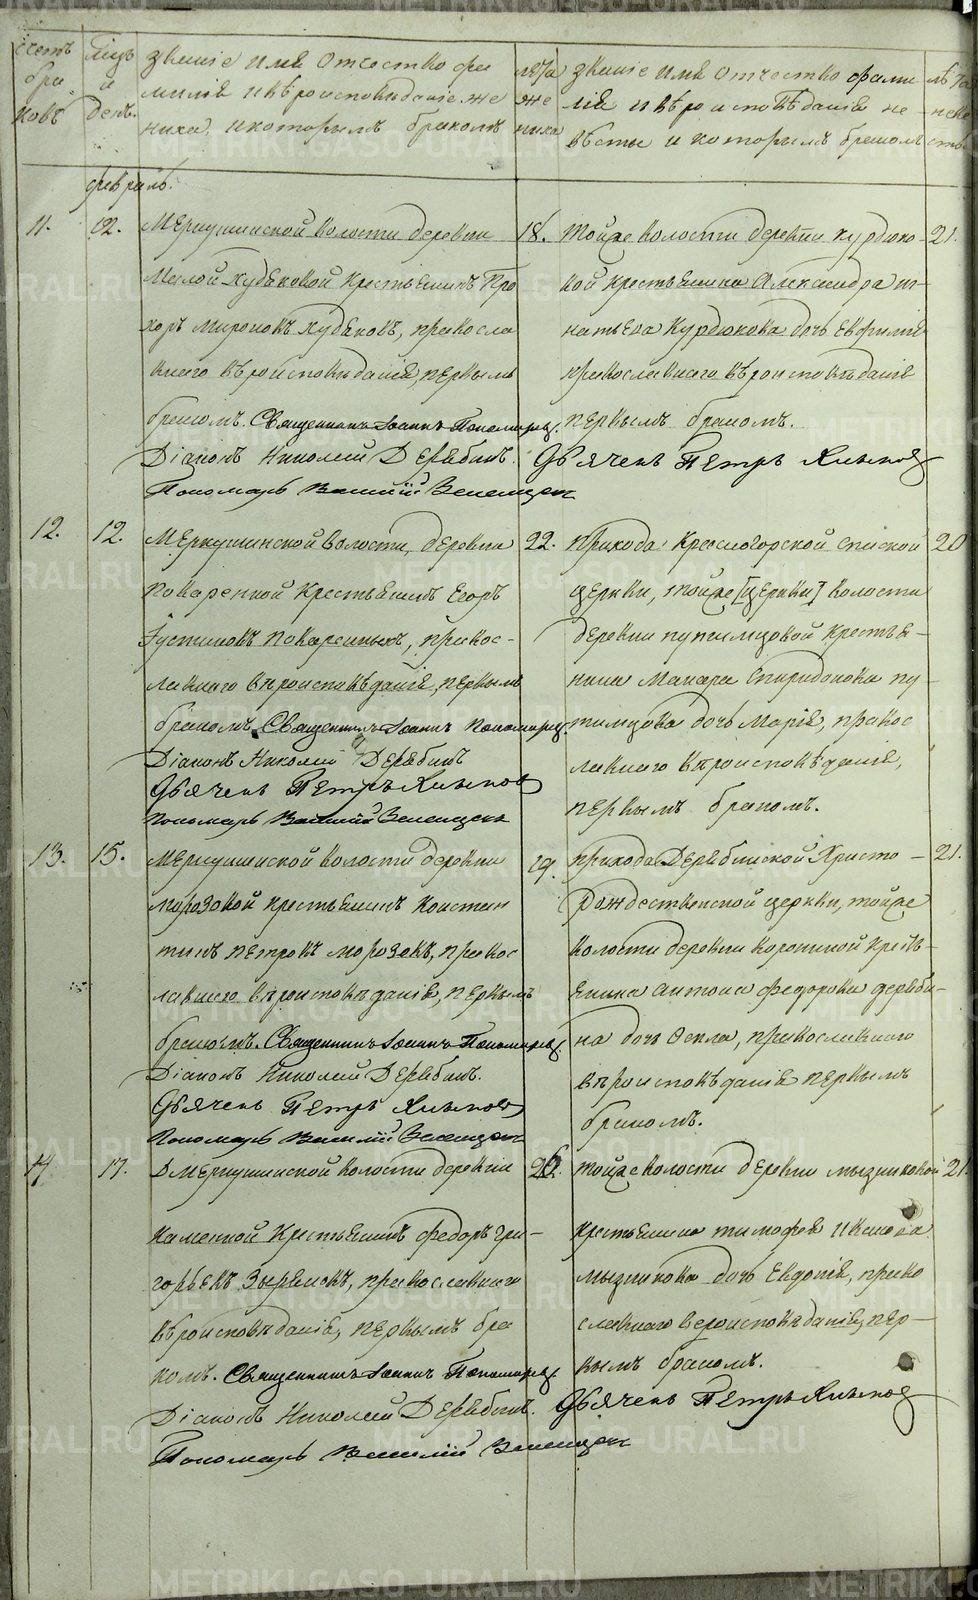 Счетъ браковъ
Мѣсяцъ и день.
Званіе имя отчество фа
милія и вѣроисповѣданіе же
ниха и которымъ бракомъ
лѣта
же
ниха
Званіе имя отчество фами
лія и вѣроисповѣданіе не
вѣсты и которымъ бракомъ
лѣта
неве
сты
февраль.
11. 12. Меркушинской волости деревни
Малой Худяковой крестьянинъ Про
хоръ Мироновъ Худяковъ, правосла
внаго вѣроисповѣданія, первымъ
бракомъ. Священникъ Іоаннъ Пономаревъ.
Діаконъ Николай Дерябинъ.
Пономарь Василій Зеленцовъ
18. Тойже волости деревни Курдюко
вой крестьянина Александра Иг
натьева Курдюкова дочь Евфимія
православнаго вѣроисповѣданія
первымъ бракомъ.
Дьячекъ Петръ Хлыновъ
21.
12. 12. Меркушинской волости, деревни
Поваренной крестьянинъ Егоръ
Густиновъ Поваренныхъ, правос-
лавнаго вѣроисповѣданія, первымъ
бракомъ. Священникъ Іоаннъ Пономаревъ.
Діаконъ Николай Дерябинъ
Дьячекъ Петръ Хлыновъ
Пономарь Василій Зеленцовъ
22. Прихода Красногорской Спаской
церкви, тойже [церкви] волости
деревни Путимцовой крестья-
нина Макара Спиридонова Пу-
тимцова дочь Марія, правос
лавнаго вѣроисповѣданія,
первымъ бракомъ.
20
13. 15. Меркушинской волости деревни
Морозовой крестьянинъ Констан
тинъ Петровъ Морозовъ, правос
лавнаго вѣроисповѣданія, первымъ
бракомъ. Священникъ Іоаннъ Пономаревъ.
Діаконъ Николай Дерябинъ.
Дьячекъ Петръ Хлыновъ
Пономарь Василій Зеленцовъ
19. Прихода Дерябинской Христо-
рождественской церкви, тойже
волости деревни Корчиной кресть-
янина Антона Федорова Деряби-
на дочь Фекла, православнаго
вѣроисповѣданія первымъ
бракомъ.
21.
14. 17. Меркушинской волости деревни
Каменной крестьянинъ Федоръ Гри-
горьевъ Зыряновъ, православнаго
вѣроисповѣданія, первымъ бра
комъ. Священникъ Іоаннъ Пономаревъ.
Діаконъ Николай Дерябинъ.
Пономарь Василій Зеленцовъ
26. Тойже волости деревни Мызниковой
крестьянина Тимофея Иванова
Мызникова дочь Евдокія, право
славнаго вероисповѣданія, пер-
вымъ бракомъ.
Дьячекъ Петръ Хлыновъ
21.
METRIKI.GASO-URAL.RU